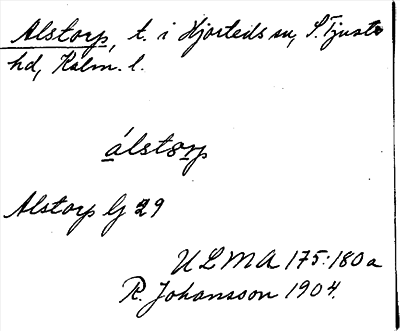 Alstorp, t. i Hjorteds sn, S. Tjusts
hd, Kalm. l.
álstorp
Alstorp lj 29
ULMA 175:180a
R. Johansson 1904.